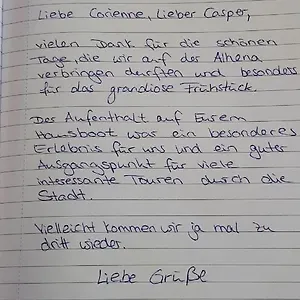 Liebe Corienne, Lieber Casper,
vielen Dank für die schönen
Tage, die wir auf der Athena
verbringen durften und besonders
für das grandiose Frühstück.
Der Aufenthalt auf Eurem
Hausboot war ein besonderes
Erlebnis für uns und ein guter
Ausgangspunkt für viele
interessante Touren durch die
Stadt.
Vielleicht kommen wir ja mal zu
dritt wieder.
Liebe Grüße